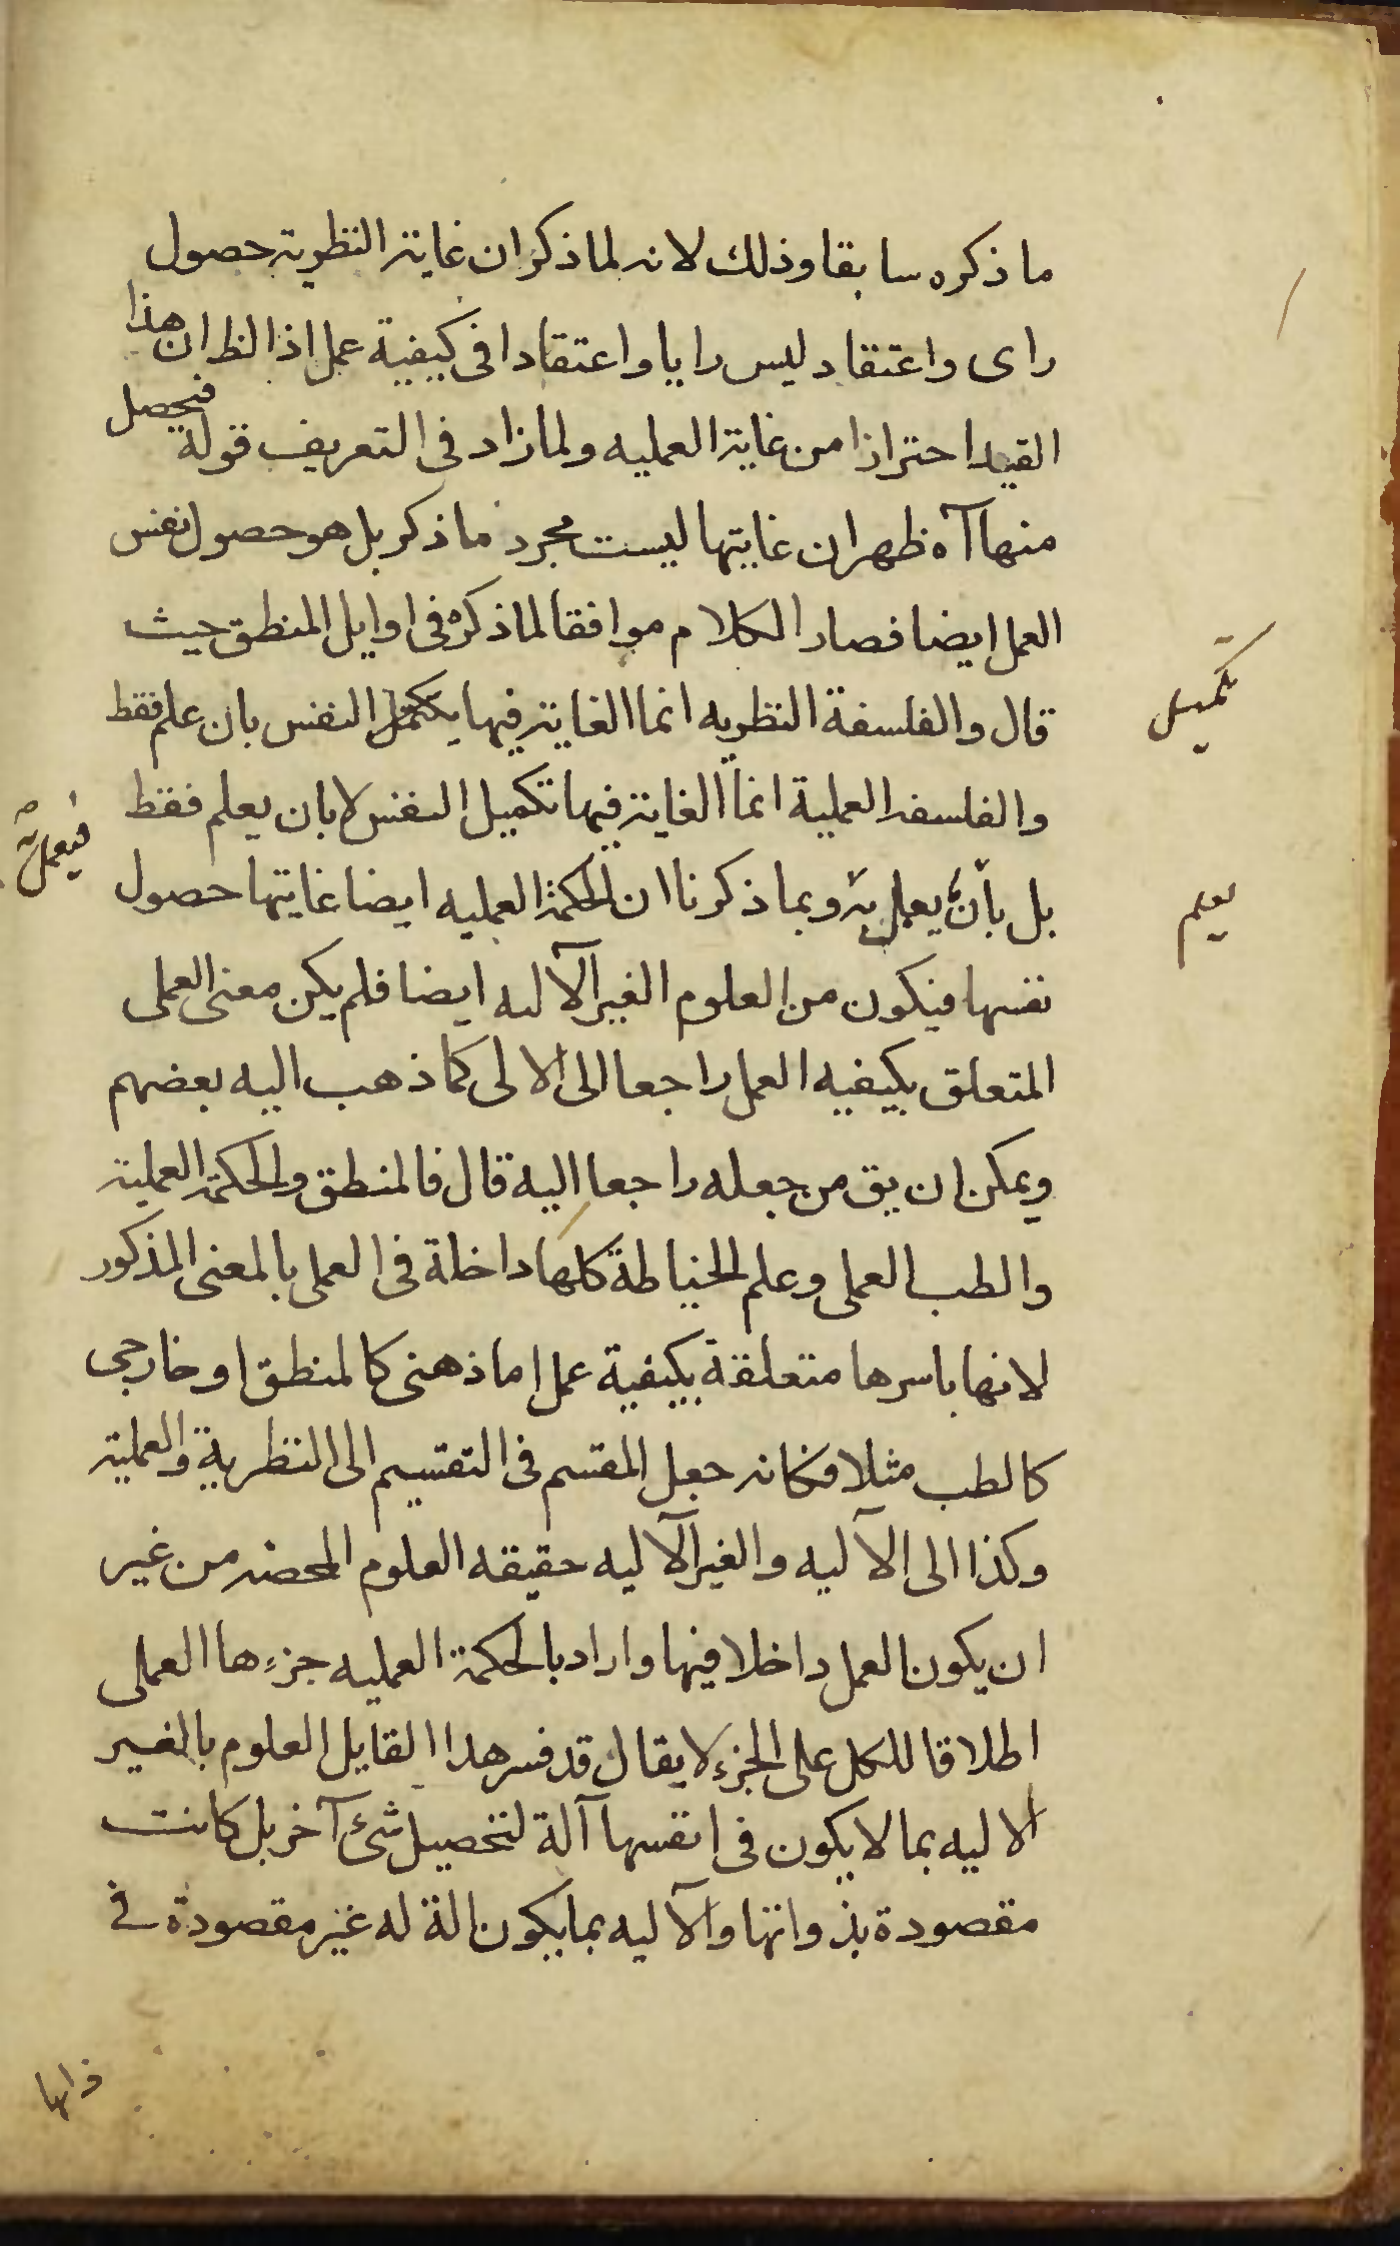 ما ذكره سابقا وذلك لانه لما ذكر ان غاية النظرية حصول
راى واعتقاد ليس رايا واعتقادا فى كيفية عمل اذ الظ ان هذا
القيد احترازا من غاية العمليه ولما زاد فى التعريف قوله فيحصل
منها آه ظهر ان غايتها ليست مجرد ما ذكر بل هو حصول نفس
العمل ايضا فصار الكلام موافقا لما ذكره فى اوايل المنطق حيث
قال والفلسفة النظريه انما الغاية فيها يتكمل النفس بان علم فقط
تكميل
والفلسفه العملية انما الغاية فيها تكميل النفس لا بان يعلم فقط
فيعمل
بل بأن يعمل به وبما ذكرنا ان الحكمة العمليه ايضا غايتها حصول
يعلم
نفسها فيكون من العلوم الغير الآليه ايضا فلم يكن معنى العملى
المتعلق بكيفيه العمل راجعا الى الالى كما ذهب اليه بعضهم
ويمكن ان يق من جعله راجعا اليه قال فالمنطق والحكمة العملية
والطب العملى وعلم الخياطة كلها داخلة فى العملى بالمعنى المذكور
لانها باسرها متعلقة بكيفية عمل اما ذهنى كالمنطق او خارجى
كالطب مثلا فكانه جعل المقسم فى التقسيم الى النظرية والعملية
وكذا الى الآليه والغير الآليه حقيقه العلوم المحضه من غير
ان يكون العمل داخلا فيها واراد بالحكمة العمليه جزءها العملى
اطلاقا للكل على الجزء لا يقال قد فسر هذا القايل العلوم بالغير
الاليه بما لا يكون فى انفسها آلة لتحصيل شئ آخر بل كانت
مقصودة بذواتها والآليه بما يكون الة له غير مقصودة فى
ذاتها